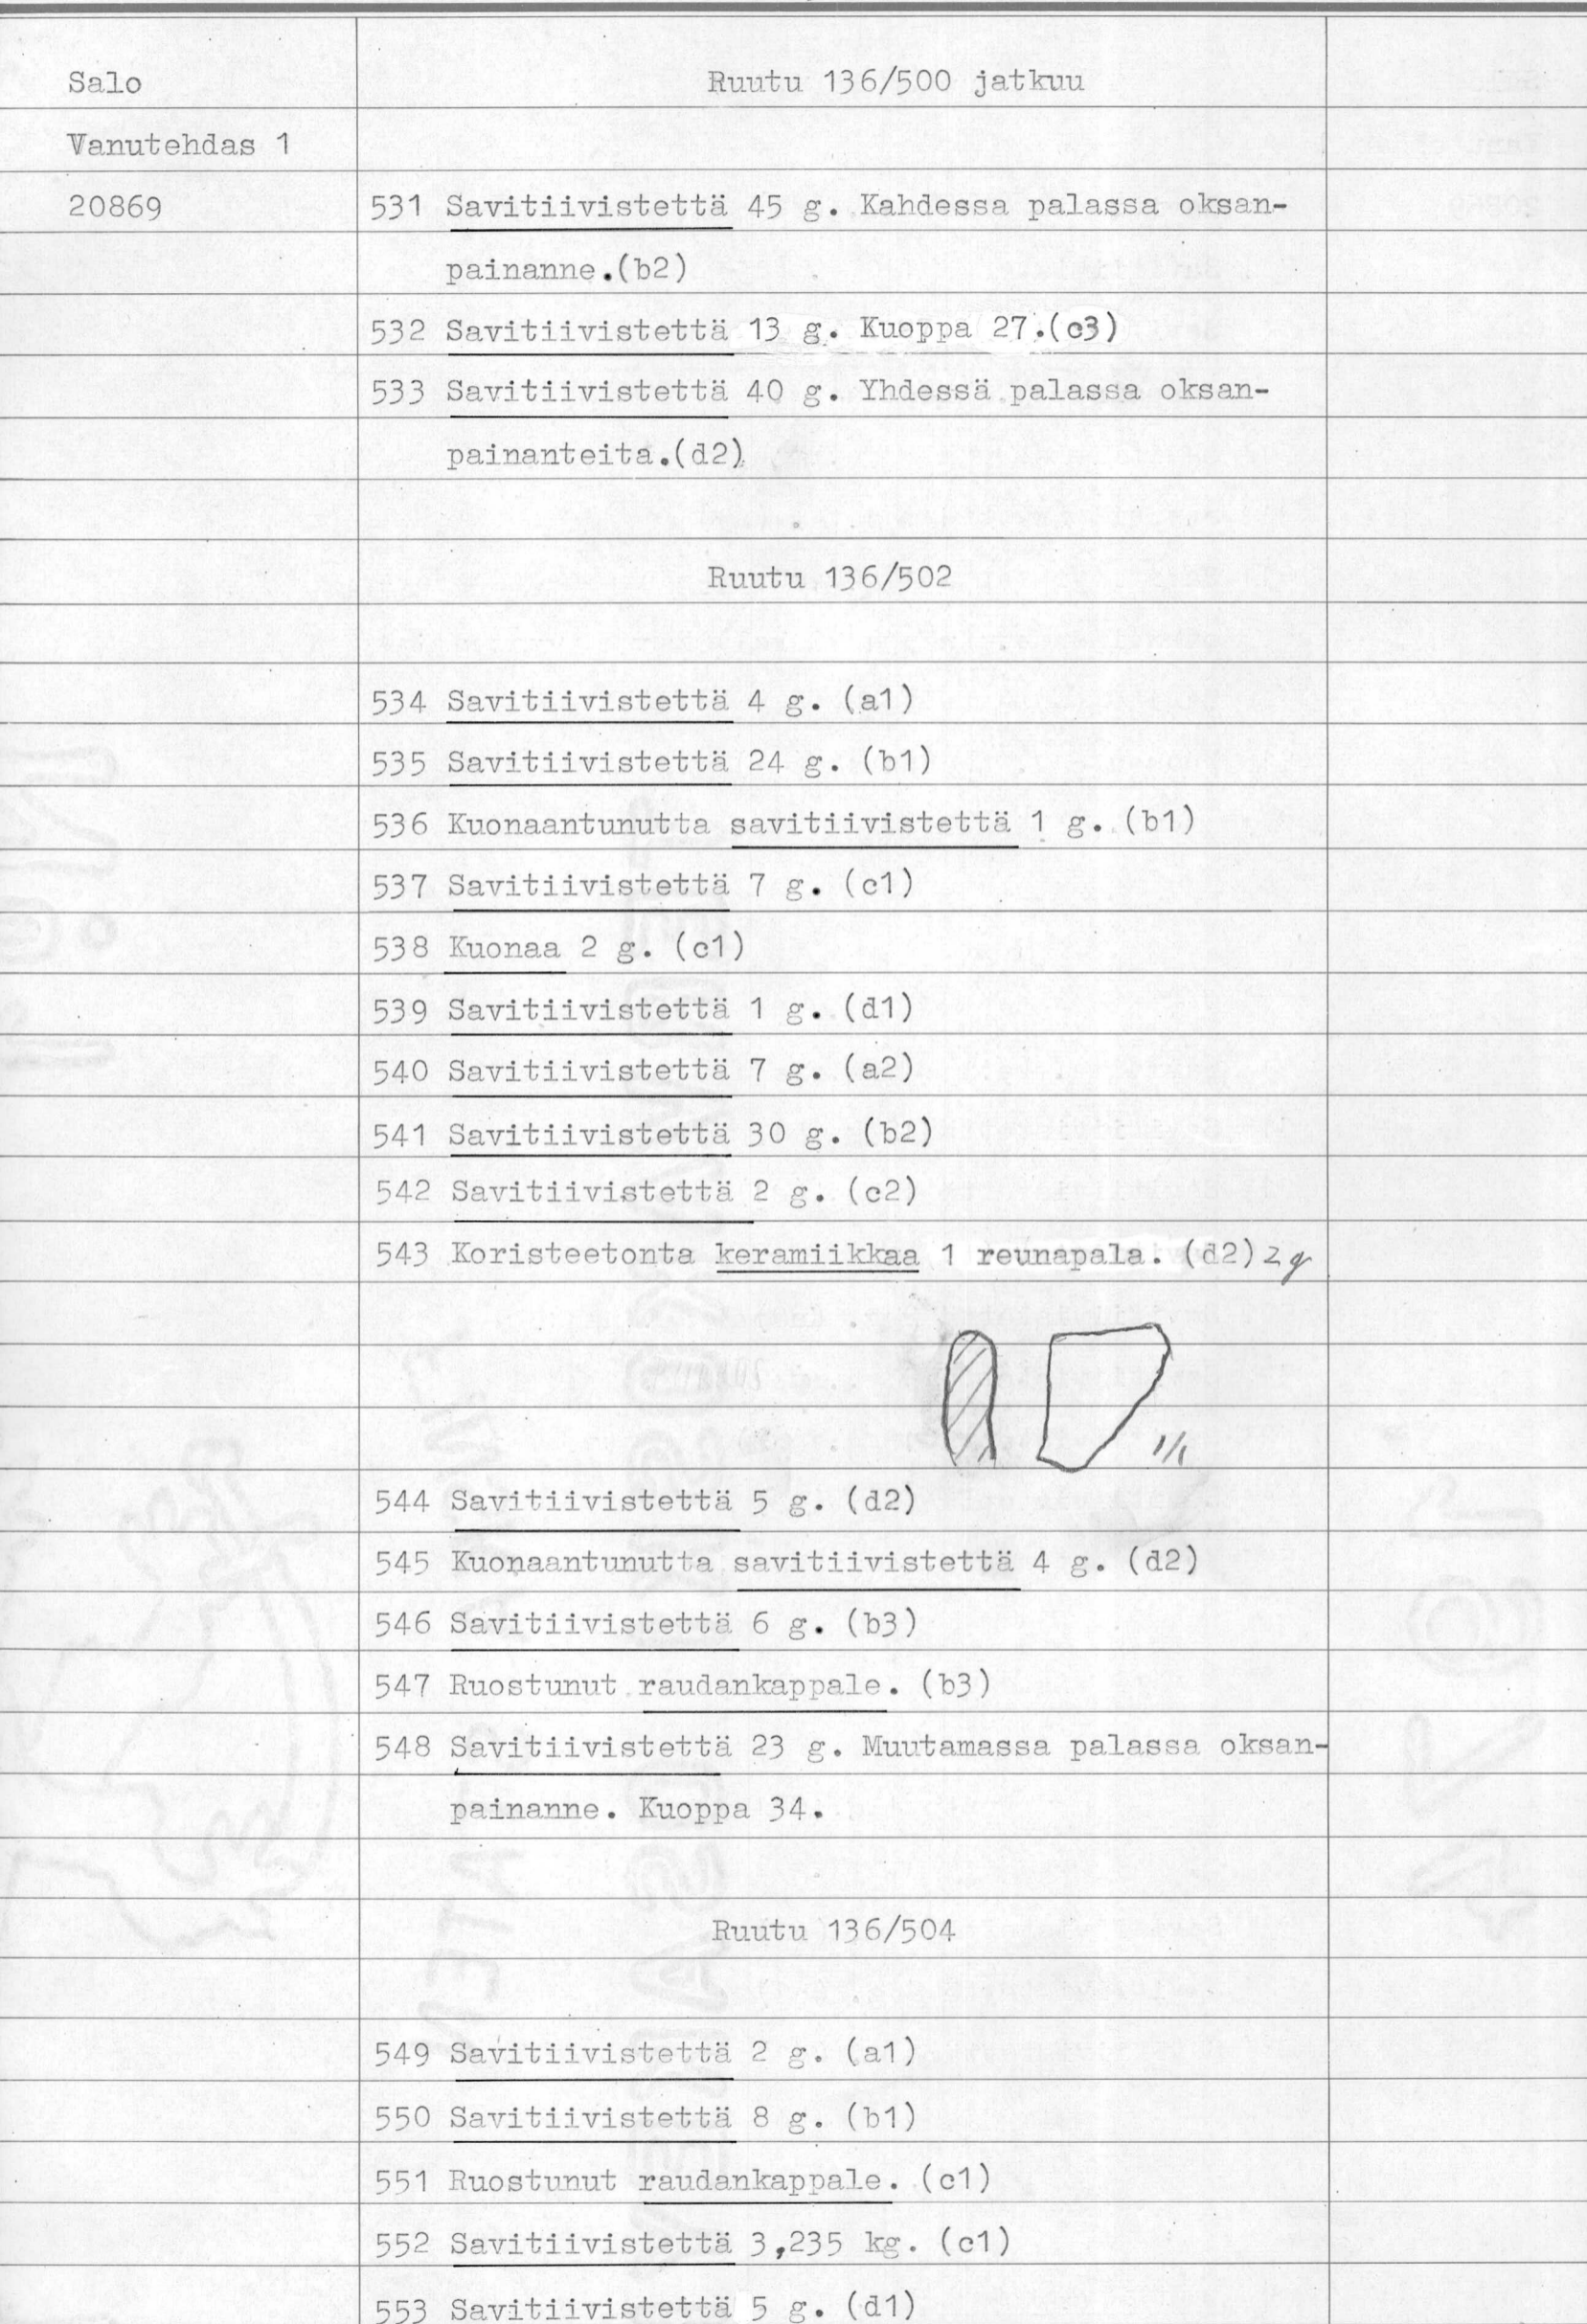 Salo
Ruutu 136/500 jatkuu
Vanutehdas 1
20869
531 Savitiivistettä 45 g. Kahdessa palassa oksan-
painanne.(b2)
532 Savitiivistettä 13 g. Kuoppa 27.(c3)
533 Savitiivistettä 40 g. Yhdessä palassa oksan-
painanteita.(d2)
Ruutu 136/502
534 Savitiivistettä 4 g. (a1)
535 Savitiivistettä 24 g. (b1)
536 Kuonaantunutta savitiivistettä 1 g. (b1)
537 Savitiivistettä 7 g. (c1)
538 Kuonaa 2 g. (c1)
539 Savitiivistettä 1 g. (d1)
540 Savitiivistettä 7 g. (a2)
541 Savitiivistettä 30 g. (b2)
542 Savitiivistettä 2 g. (c2)
543 Koristeetonta keramiikkaa 1 reunapala. (d2) 2 g
1/1
544 Savitiivistettä 5 g. (d2)
545 Kuonaantunutta savitiivistettä 4 g. (d2)
546 Savitiivistettä 6 g. (b3)
547 Ruostunut raudankappale. (b3)
548 Savitiivistettä 23 g. Muutamassa palassa oksan-
painanne. Kuoppa 34.
Ruutu 136/504
549 Savitiivistettä 2 g. (a1)
550 Savitiivistettä 8 g. (b1)
551 Ruostunut raudankappale. (c1)
552 Savitiivistettä 3,235 kg. (c1)
553 Savitiivistettä 5 g. (d1)